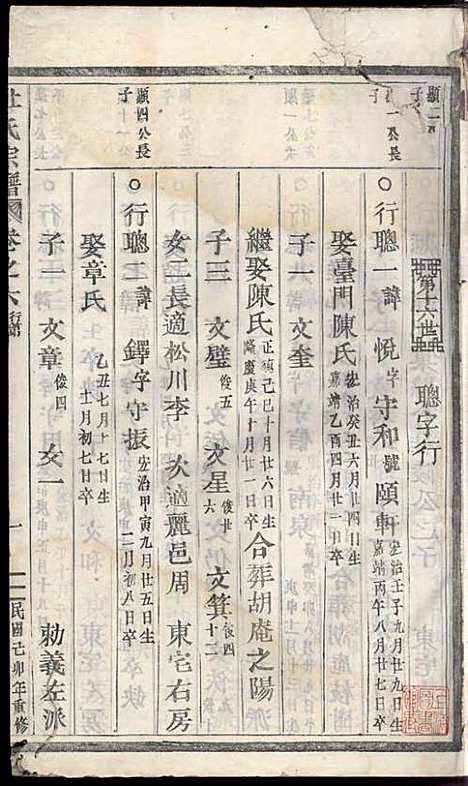 第十六世　聰字行
顯二
一公長
子
○行聰一諱悅字守和號頤軒弘治壬子九月廿九日生
嘉靖丙午八月廿七日卒
娶臺門陳氏弘治癸丑六月廿四日生
嘉靖乙酉四月廿二日卒
子一　文奎
繼娶陳氏正德己巳十月廿六日生
隆慶庚午十月廿一日卒合葬胡庵之陽
子三　文璧俊五　文星俊廿六　文箕俊四十二
女二長適松川李　次適麗邑周　東宅右房
顯四公長
子
○行聰二諱鐸字守振弘治甲寅九月廿五日生
二月初八日卒
娶章氏乙丑七月十七日生
十月初七日卒
子一　文章俊四　女一　勅義左派
杜氏宗譜　卷之六行第　一　民國己卯年重修